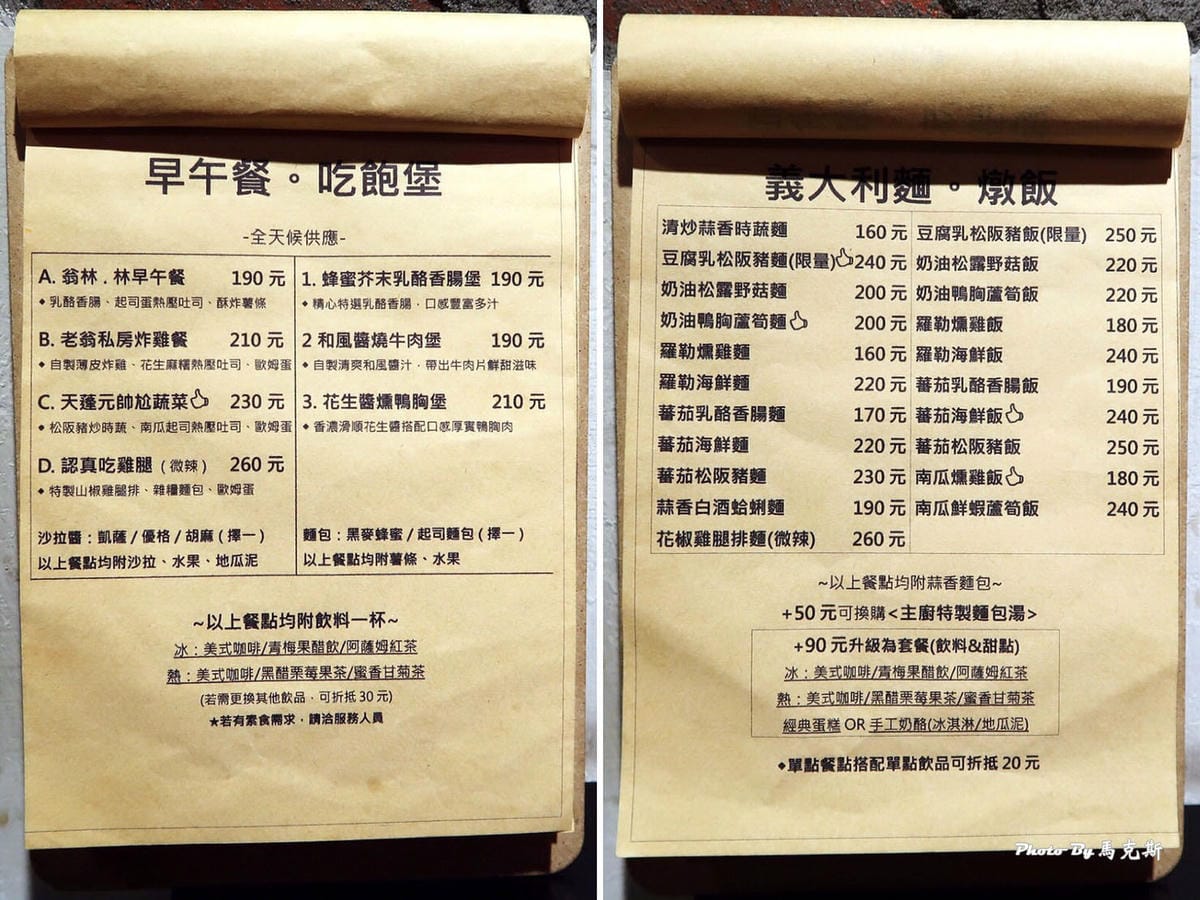 早午餐。吃飽堡
-全天候供應-
A. 翁林 . 林早午餐 190 元
◆ 乳酪香腸、起司蛋熱壓吐司、酥炸薯條
B. 老翁私房炸雞餐 210 元
◆ 自製薄皮炸雞、花生麻糬熱壓吐司、歐姆蛋
C. 天蓬元帥尬蔬菜 230 元
◆ 松阪豬炒時蔬、南瓜起司熱壓吐司、歐姆蛋
D. 認真吃雞腿 (微辣) 260 元
◆ 特製山椒雞腿排、雜糧麵包、歐姆蛋
沙拉醬：凱薩 / 優格 / 胡麻 ( 擇一 )
以上餐點均附沙拉、水果、地瓜泥
1. 蜂蜜芥末乳酪香腸堡 190 元
◆ 精心特選乳酪香腸，口感豐富多汁
2 和風醬燒牛肉堡 190 元
◆ 自製清爽和風醬汁，帶出牛肉片鮮甜滋味
3. 花生醬燻鴨胸堡 210 元
◆ 香濃滑順花生醬搭配口感厚實鴨胸肉
麵包：黑麥蜂蜜 / 起司麵包 ( 擇一 )
以上餐點均附薯條、水果
~以上餐點均附飲料一杯~
冰：美式咖啡/青梅果醋飲/阿薩姆紅茶
熱：美式咖啡/黑醋栗莓果茶/蜜香甘菊茶
(若需更換其他飲品，可折抵 30 元)
★若有素食需求，請洽服務人員
義大利麵。燉飯
清炒蒜香時蔬麵 160 元
豆腐乳松阪豬麵(限量) 240 元
奶油松露野菇麵 200 元
奶油鴨胸蘆筍麵 200 元
羅勒燻雞麵 160 元
羅勒海鮮麵 220 元
蕃茄乳酪香腸麵 170 元
蕃茄海鮮麵 220 元
蕃茄松阪豬麵 230 元
蒜香白酒蛤蜊麵 190 元
花椒雞腿排麵(微辣) 260 元
豆腐乳松阪豬飯(限量) 250 元
奶油松露野菇飯 220 元
奶油鴨胸蘆筍飯 220 元
羅勒燻雞飯 180 元
羅勒海鮮飯 240 元
蕃茄乳酪香腸飯 190 元
蕃茄海鮮飯 240 元
蕃茄松阪豬飯 250 元
南瓜燻雞飯 180 元
南瓜鮮蝦蘆筍飯 240 元
~以上餐點均附蒜香麵包~
+50 元可換購<主廚特製麵包湯>
+90 元升級為套餐(飲料&甜點)
冰：美式咖啡/青梅果醋飲/阿薩姆紅茶
熱：美式咖啡/黑醋栗莓果茶/蜜香甘菊茶
經典蛋糕 OR 手工奶酪(冰淇淋/地瓜泥)
◆單點餐點搭配單點飲品可折抵 20 元
Photo By 馬克斯